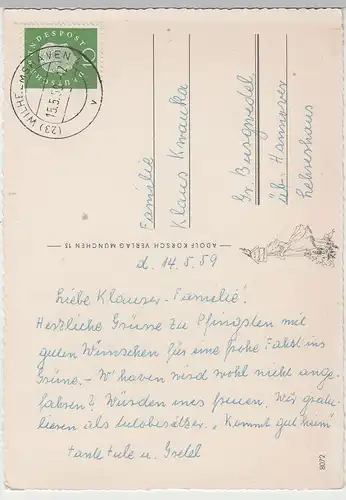 DEUTSCHE BUNDESPOST
(23) WILHELMSHAVEN
15.5.59
Familie
Klaus Kwauka
Gr. Burgwedel
üb. Hannover
Lehrerhaus
ADOLF KORSCH VERLAG MÜNCHEN 13
d. 14.5.59
Liebe Klauser-Familie!
Herzliche Grüsse zu Pfingsten mit
guten Wünschen für eine frohe Fahrt ins
Grüne.- W'haven wird wohl nicht ange-
fahren? Würden uns freuen. Wir gratu-
lieren als Autobesitzer. "Kommt gut heim"
Tante Tule u. Gretel
8072